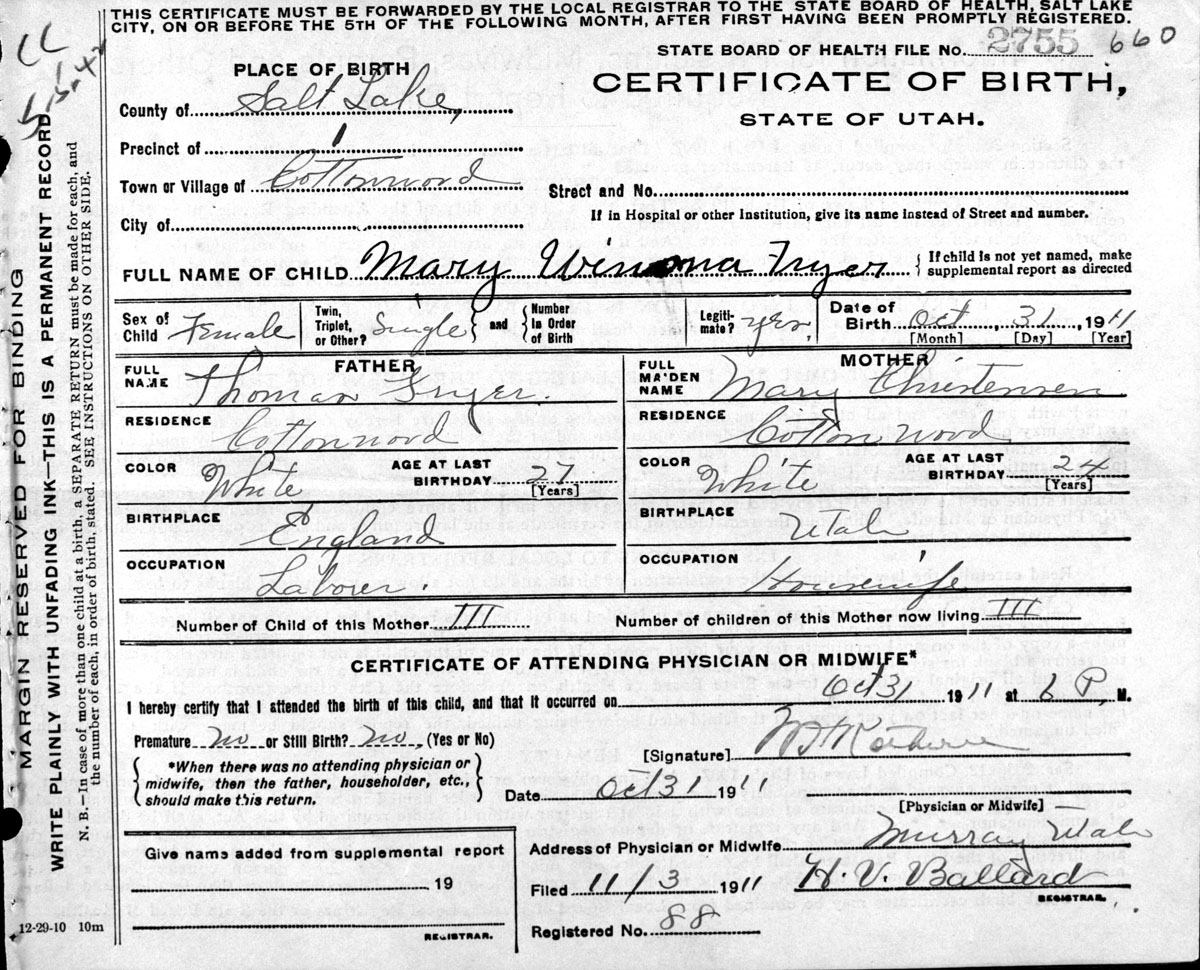 THIS CERTIFICATE MUST BE FORWARDED BY THE LOCAL REGISTRAR TO THE STATE BOARD OF HEALTH, SALT LAKE
CITY, ON OR BEFORE THE 5TH OF THE FOLLOWING MONTH, AFTER FIRST HAVING BEEN PROMPTLY REGISTERED.
STATE BOARD OF HEALTH FILE NO. 2755 660
PLACE OF BIRTH
CERTIFICATE OF BIRTH,
STATE OF UTAH.
County of Salt Lake,
Precinct of 1
Town or Village of Cottonwood
Street and No.
City of
If in Hospital or other Institution, give its name instead of Street and number.
FULL NAME OF CHILD Mary Winona Fryer { If child is not yet named, make supplemental report as directed
Sex of Child Female Twin, Triplet, or Other? Single } and { Number in Order of Birth Legiti- mate? yes, Date of Birth Oct, 31, 1911
[Month] [Day] [Year]
FATHER
FULL NAME Thomas Fryer.
RESIDENCE Cottonwood
COLOR White AGE AT LAST BIRTHDAY 27 [Years]
BIRTHPLACE England
OCCUPATION Laborer.
MOTHER
FULL MAIDEN NAME Mary Christensen
RESIDENCE Cottonwood
COLOR White AGE AT LAST BIRTHDAY 24 [Years]
BIRTHPLACE Utah
OCCUPATION Housewife
Number of Child of this Mother III Number of children of this Mother now living III
CERTIFICATE OF ATTENDING PHYSICIAN OR MIDWIFE*
I hereby certify that I attended the birth of this child, and that it occurred on Oct 31 1911 at 6 P, M.
Premature no or Still Birth? no, (Yes or No)
[Signature]
{ *When there was no attending physician or
midwife, then the father, householder, etc.,
should make this return. }
Date Oct 31 1911
[Physician or Midwife]
Address of Physician or Midwife Murray Utah
Give name added from supplemental report
19
REGISTRAR.
Filed 11/3 1911 H. V. Ballard
REGISTRAR.
Registered No. 88
12-29-10 10m
MARGIN RESERVED FOR BINDING
WRITE PLAINLY WITH UNFADING INK—THIS IS A PERMANENT RECORD
N. B.—In case of more than one child at a birth, a SEPARATE RETURN must be made for each, and
the number of each, in order of birth, stated. SEE INSTRUCTIONS ON OTHER SIDE.